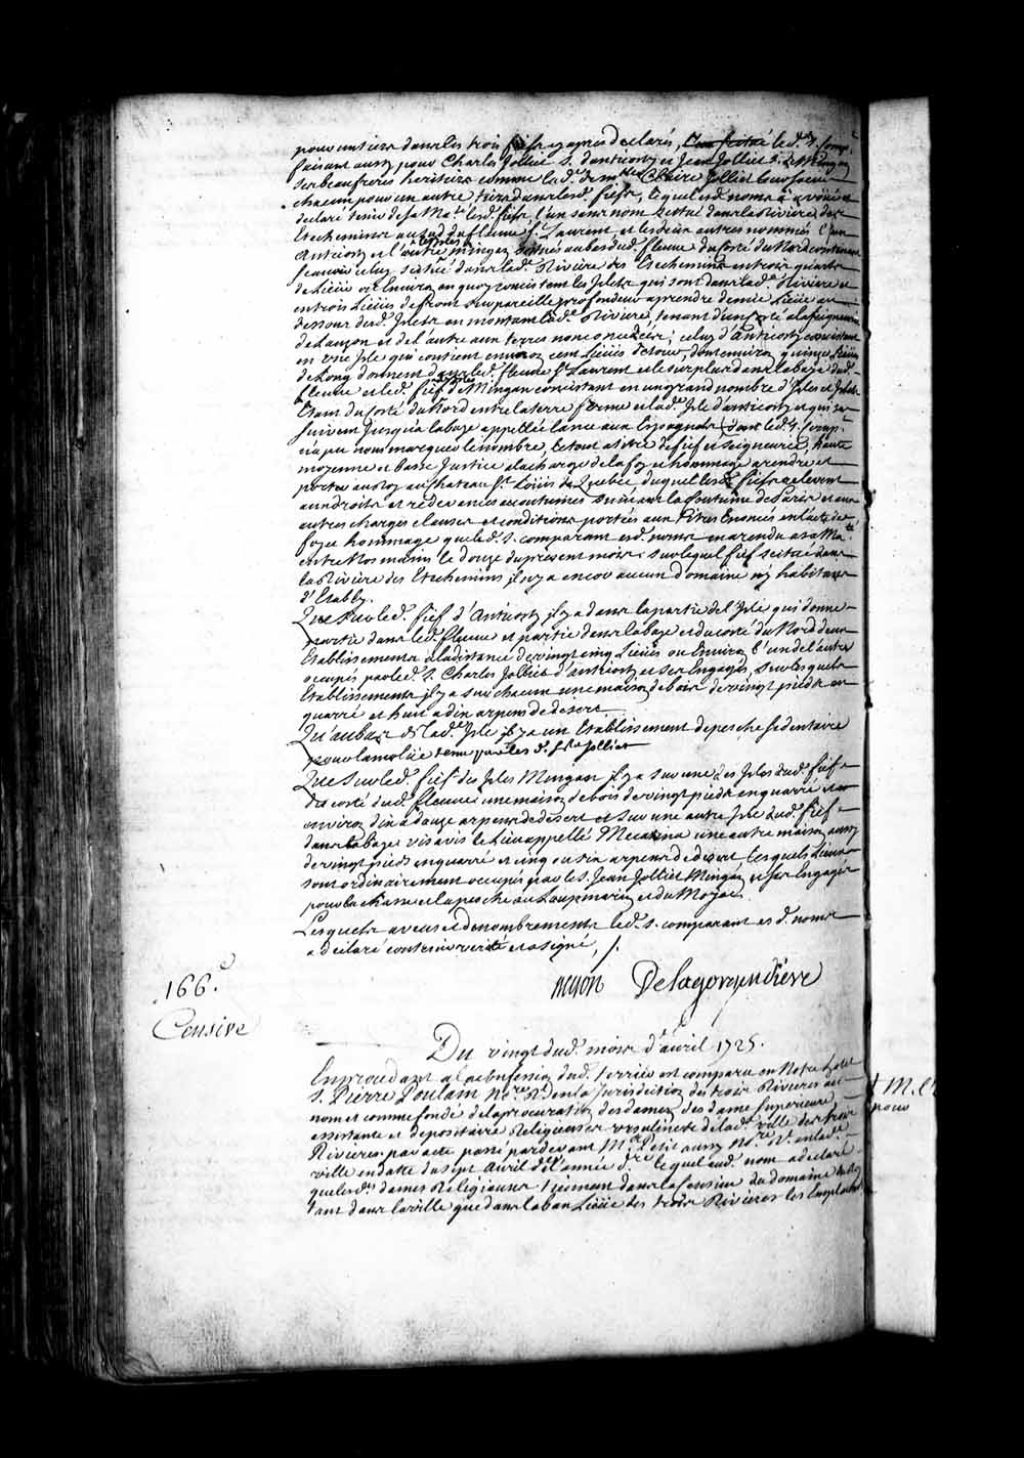 pour un tiers dans les trois fiefs cy apres declarés, led. s. comp.
faisant aussy pour Charles Jolliet s. d'anticosty et Jean Jolliet s. de Mingan
ses beaufreres heritiers comme lad. de.elle Claire Jolliet leur soeur
chacun pour un autre tiers dans lesd. fiefs, lequel esd. noms a
declaré tenir de sa Ma.té lesd. fiefs l'un sans nom scitué dans la Riviere des
Etechemins au sud du fleuve S.t Laurent et les deux autres nommés l'un
Anticosty et l'autre Mingan scitués au bas dud. fleuve du costé du Nord
scavoir celuy scitué dans lad. Riviere des Etechemins en trois quarts
de Lieüe ou Environ en quoy consistent les Islets qui sont dans lad. Riviere et
en trois Lieües de front sur pareille profondeur a prendre demie Lieüe au
dessous desd. Islets en montant lad. Riviere, tenant d'un costé a la seigneurie
de Lauzon et de l'autre aux terres non concedées; celuy d'Anticosty consistant
en une Isle qui contient environ cent Lieües de tour, dont environ quinze Lieües
de Long donnent dans led. fleuve S.t Laurent et le surplus dans la baye dud.
fleuve et led. fief des Isles de Mingan consistant en un grand nombre d'Isles et Islets
Etans du costé du Nord entre la terre ferme et lad. Isle d'anticosty et qui se
suivent jusqu'a la baye appellée lance aux Espagnols dont led. s. comp.t
n'a pu nous marquer le nombre, le tout a titre de fief et seigneurie, haute
moyenne et basse Justice a la charge de la foy et hommage a rendre et
porter au Roy au chateau S.t Loüis de Quebec duquel lesd. fiefs relevent
aux droits et redevances accoutumés suivant la Coutume de Paris et aux
autres charges clauses et conditions portées aux Titres Enoncés en l'acte de
foy et hommage que led. s. comparant esd. noms en a rendu a sa Ma.té
entre Nos mains le douze du present mois; sur lequel fief scitué dans
la Riviere des Etechemins il n'y a encor aucun Domaine ny habitans
d'Etably.
Que sur led. fief d'Anticosty il y a dans la partie de l'Isle qui donne
partie dans led. fleuve et partie dans la baye et du costé du Nord deux
Etablissements a la distance de vingt cinq Lieües ou Environ l'un de l'autre
occupés par led. s. Charles Jolliet d'anticosty et ses Engagés, sur lesquels
Etablissements il y a sur chacun une maison de bois de vingt pieds en
quarré et huit a dix arpens de desert
Qu'au bas de lad. Isle il y a un Etablissement de pesche sedentaire
pour la molüe tenu par les d. s.rs Jolliet
Que sur led. fief des Isles Mingan il y a sur une des Isles dud. fief
du costé dud. fleuve une maison de bois de vingt pieds en quarré et
environ dix a douze arpens de desert et sur une autre Isle dud. fief
dans la baye vis avis le Lieu appellé Mecatina une autre maison aussy
de vingt pieds en quarré et cinq ou six arpens de desert lesquels Lieux
sont ordinairement occupés par le s. Jean Jolliet Mingan et ses Engagés
pour la chasse et la pesche au Loup marin et du Moyac
Lesquels aveus et denombrements led. s. comparant es d. noms
a declaré contenir verité et a signé, /.
Begon Delagorgendiere
166.e
Censive
Du vingt dud. mois d'avril 1725.
En procedant a la confection dud. terrier est comparu en Notre hotel
s. Pierre Poulain No.re R.l en la Jurisdiction des trois Rivieres au
nom et comme fondé de la procuration des dames superieure
assistante et depositaire Religieuses ursulines de lad. ville des trois
Rivieres par acte passé pardevant M.e Petit aussy No.re R.l en lad.
ville en datte du sept Avril de l'année d.re lequel aud. nom a declaré
que lesd. dames Religieuses tiennent dans la Censive du domaine du Roy
tant dans la ville que dans la banLieüe des trois Rivieres les Emplacements
+ M.e
pour